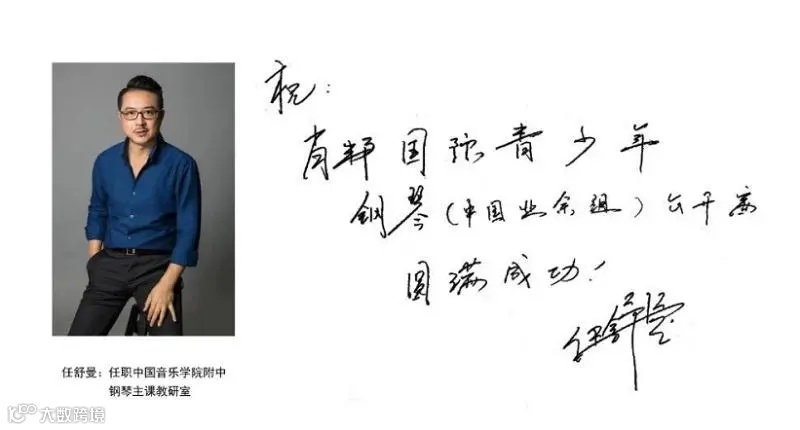 祝:
肖邦国际青少年
钢琴(中国业余组)公开赛
圆满成功!
任舒曼
任舒曼:任职中国音乐学院附中
钢琴主课教研室
大数跨境